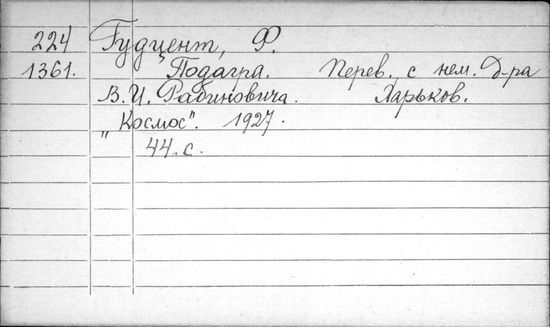 224 Гудцент, Ф.
1361. Подагра. Перев. с нем. Д-ра
В. И. Рабиновича. Харьков.
„Космос". 1927.
44 с.